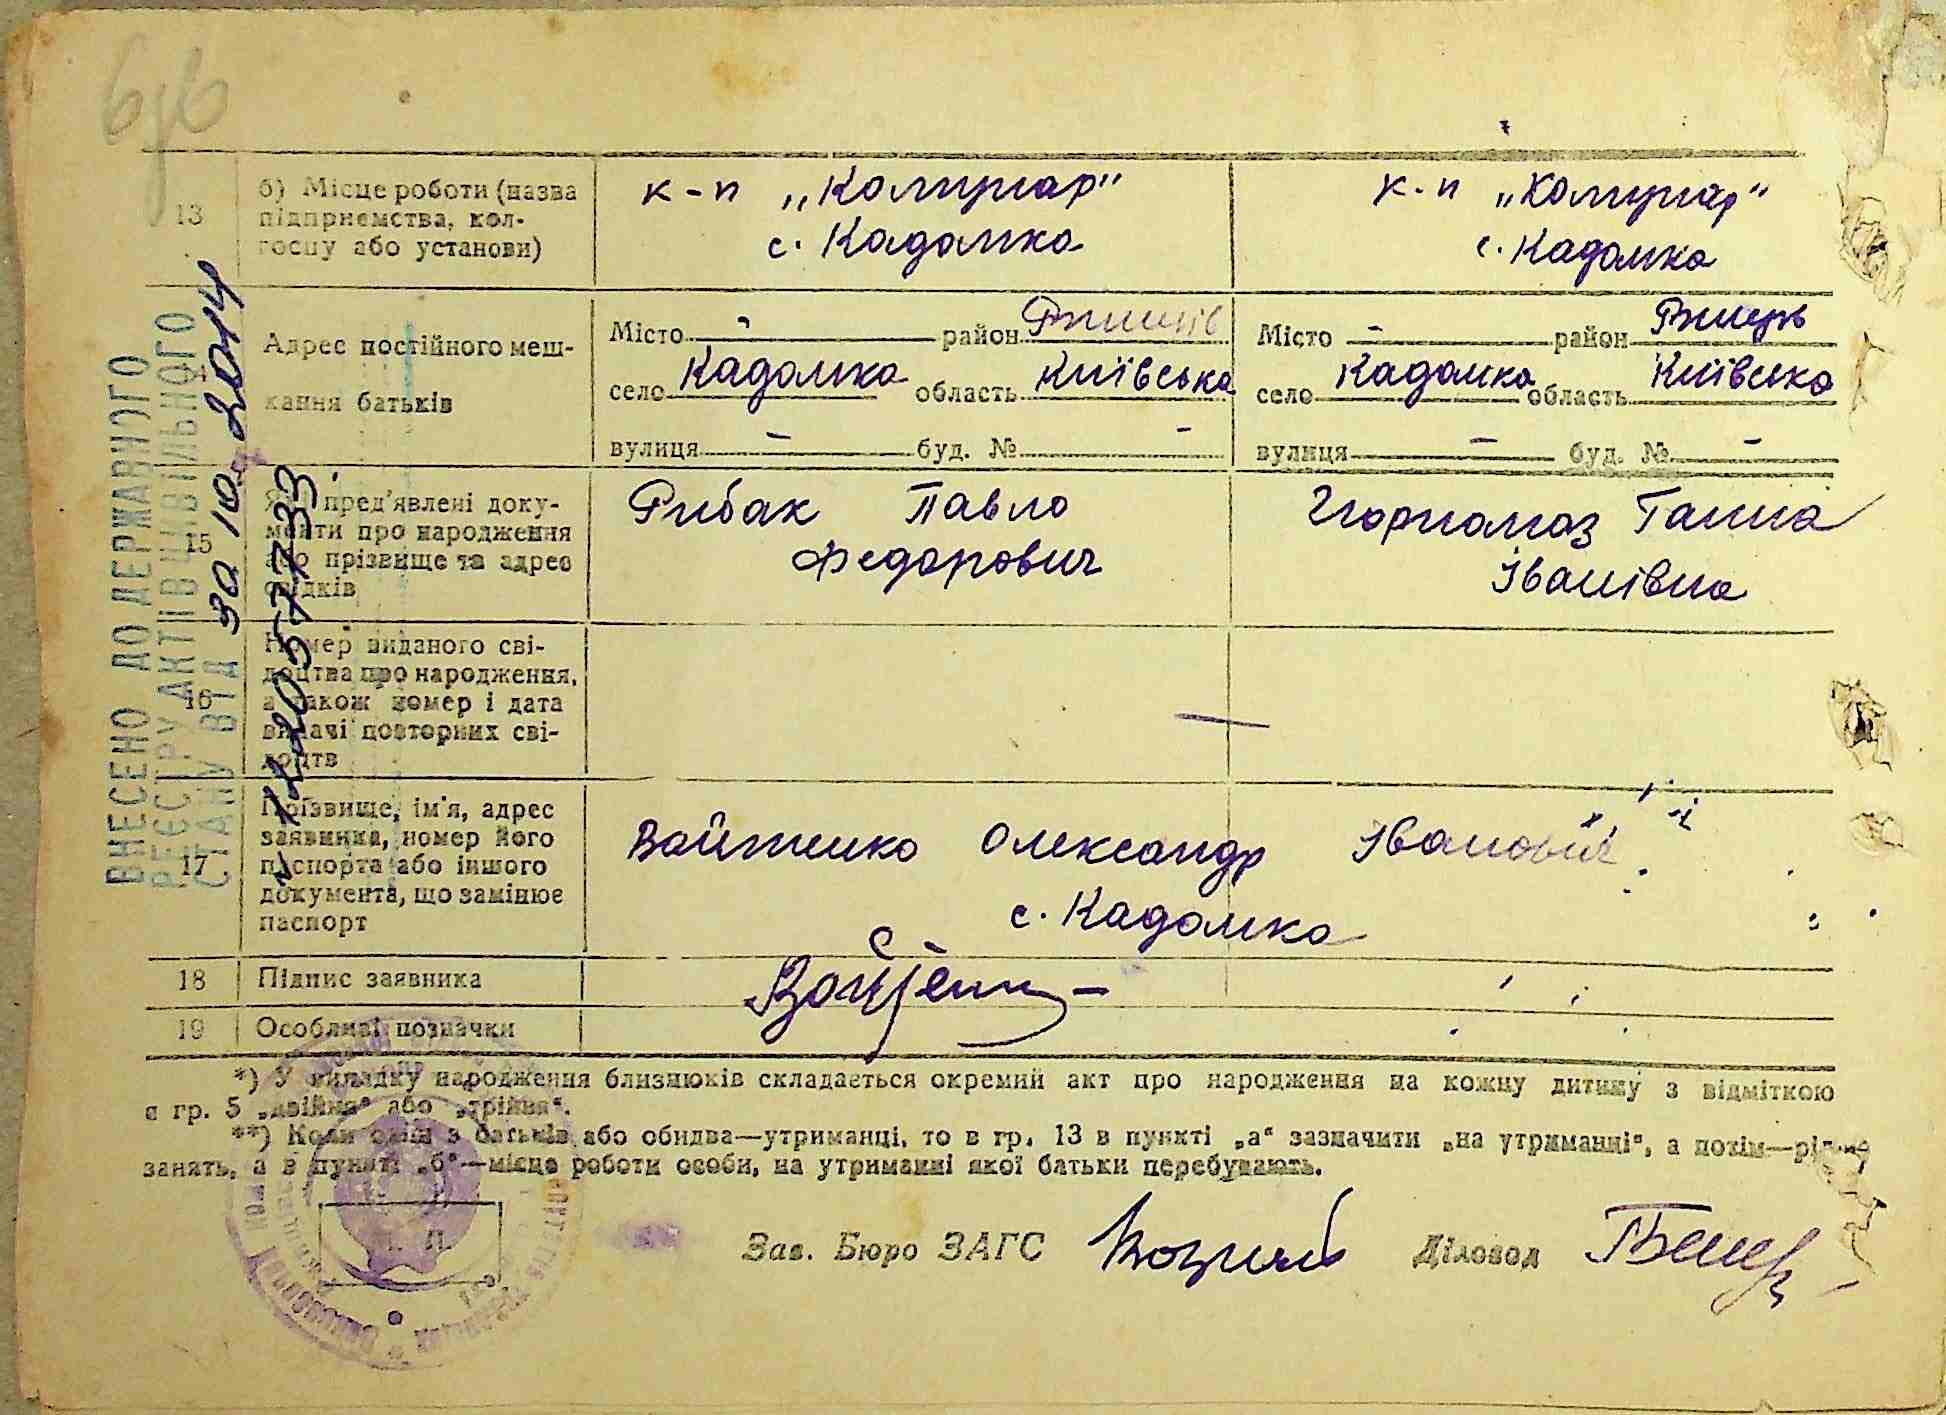 13
б) Місце роботи (назва
підприємства, кол-
госпу або установи)
к-п
с. Кадомка
к-п
с. Кадомка
Адрес постійного меш-
кання батьків
Місто - район
село Кадомка область Київська
вулиця - буд. № -
Місто - район
село Кадомка область Київська
вулиця - буд. № -
15
Які пред'явлені доку-
менти про народження
або прізвище та адрес
свідків
Рибак Павло
Федорович
Ганна
Іванівна
16
Номер виданого сві-
доцтва про народження,
а також номер і дата
видачі повторних сві-
доцтв
—
17
Прізвище, ім'я, адрес
заявника, номер його
паспорта або іншого
документа, що замінює
паспорт
Войтенко Олександр Іванович
с. Кадомка
18
Підпис заявника
19
Особливі позначки
*) У випадку народження близнюків складається окремий акт про народження на кожну дитину з відміткою
в гр. 5 „двійня“ або „трійня“.
**) Коли один з батьків або обидва—утриманці, то в гр. 13 в пункті „а“ зазначити „на утриманні“, а потім—рід
занять, а в пункті „б“—місце роботи особи, на утриманні якої батьки перебувають.
М. П.
Зав. Бюро ЗАГС
Діловод
ВНЕСЕНО ДО ДЕРЖАВНОГО
РЕЄСТРУ АКТІВ ЦИВІЛЬНОГО
СТАНУ ВІД 30 10 2014